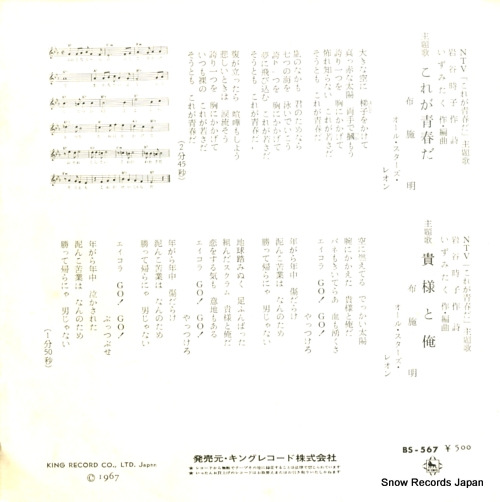 NTV「これが青春だ」主題歌
岩谷時子 作詩
いずみたく 作・編曲
主題歌 これが青春だ
布施 明
オール・スターズ・レオン
大きな空に 梯子をかけて
真っ赤な太陽 両手で掴もう
誇り一つを 胸にかかげて
怖れ知らない これが若さだ
そうとも これが青春だ
嵐のなかも 君のためなら
七つの海を 泳いでいこう
誇り一つを 胸にかかげて
夢に飛び込む これが若さだ
そうとも これが青春だ
腹が立ったら 喧嘩もしよう
悲しいときは 涙流そう
誇り一つを 胸にかかげて
いつも裸の これが若さだ
そうとも これが青春だ
(2分45秒)
NTV「これが青春だ」主題歌
岩谷時子 作詩
いずみたく 作・編曲
主題歌 貴様と俺
布施 明
オール・スターズ・レオン
空に燃えてる でっかい太陽
腕にかかえた 貴様と俺だ
バネもきいてらあ 血も熱くさ
エイコラ GO! GO!
やっつけろ
年がら年中 傷だらけ
泥んこ苦業は なんのため
勝って帰らにゃ 男じゃない
地球踏みぬく 足ふんばった
組んだスクラム 貴様と俺だ
恋をする気も 意地もある
エイコラ GO! GO!
やっつけろ
年がら年中 傷だらけ
泥んこ苦業は なんのため
勝って帰らにゃ 男じゃない
エイコラ GO! GO!
ぶっつぶせ
年がら年中 泣かされた
泥んこ苦業は なんのため
勝って帰らにゃ 男じゃない
(1分50秒)
KING RECORD CO., LTD. Japan
© 1967
発売元・キングレコード株式会社
BS-567 ¥500
Snow Records Japan